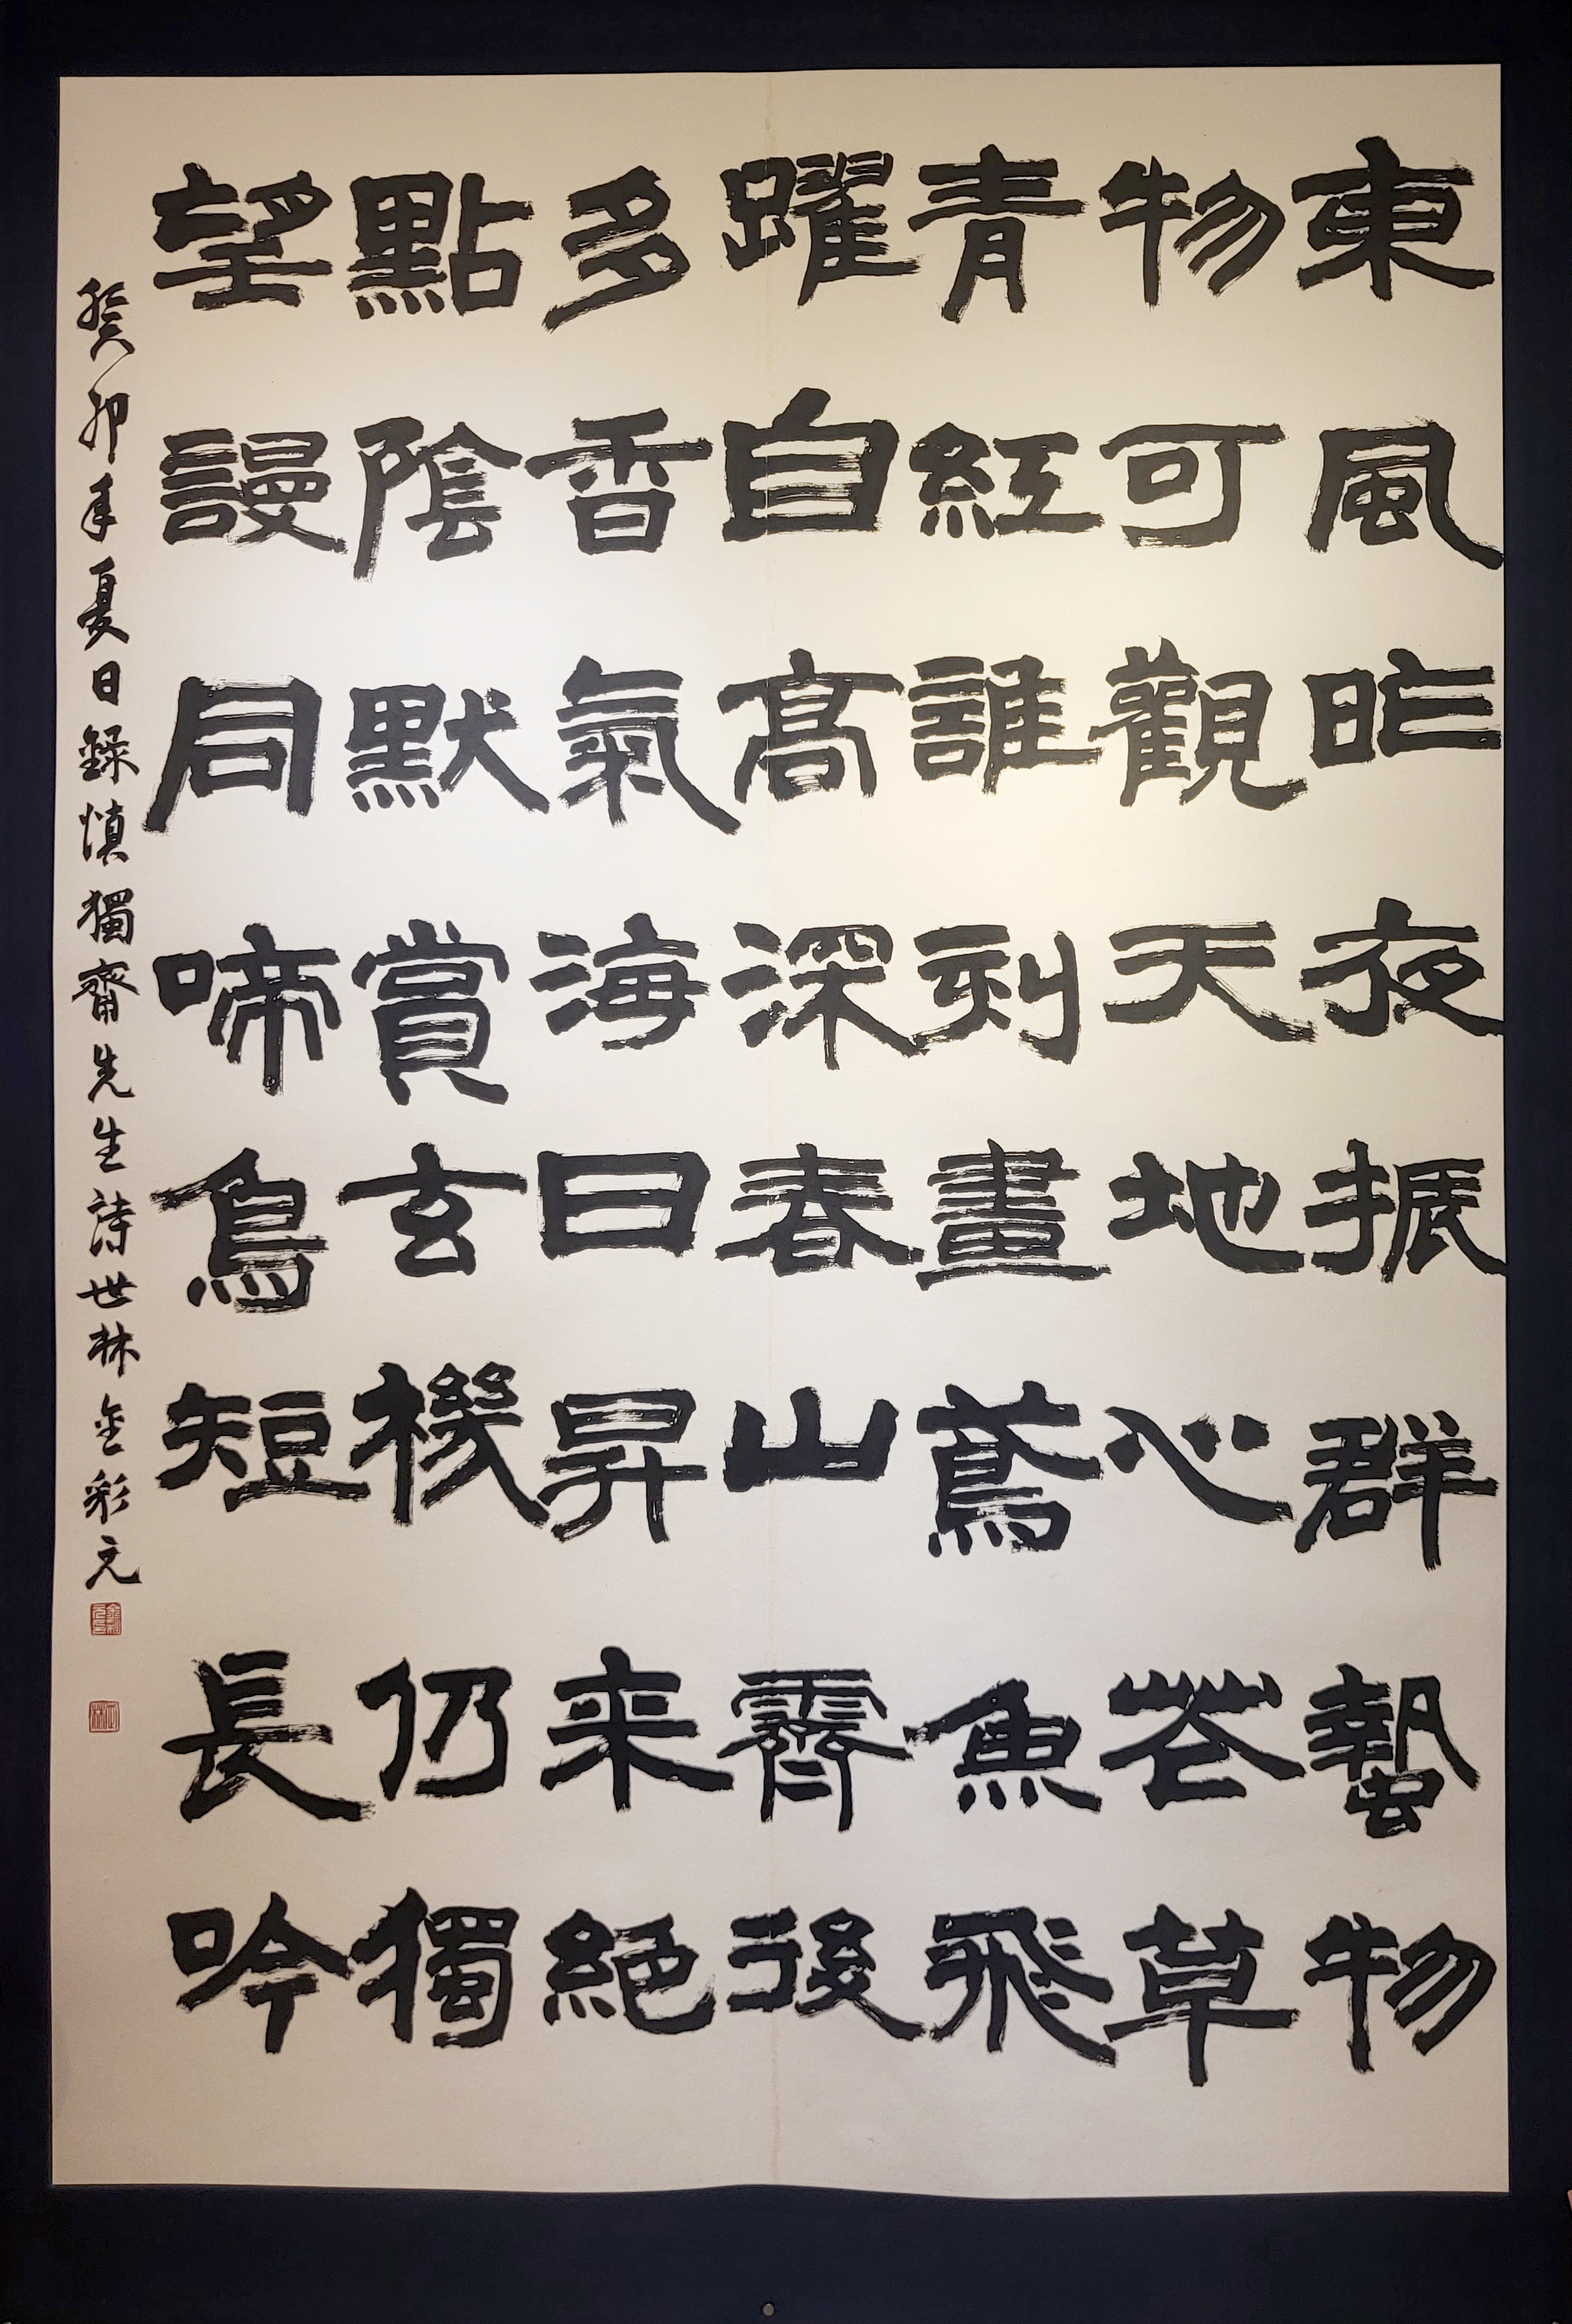 東風昨夜振群蟄物
物可觀天地心花草
青紅誰刻畫鳶魚飛
躍自高深春山霽後
多香氣海日昇来絕
點陰默賞玄機仍獨
望謾同啼鳥短長吟
癸卯年夏日錄慎獨齋先生詩世林金彩元